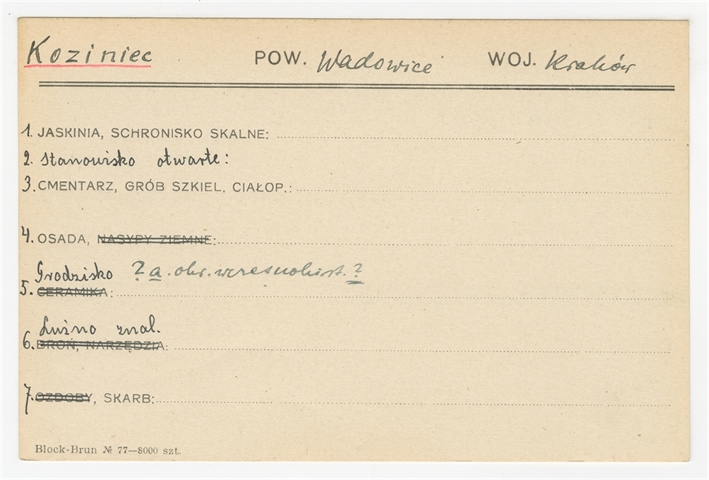 Koziniec POW. Wadowice WOJ. Kraków
1. JASKINIA, SCHRONISKO SKALNE:
2. Stanowisko otwarte:
3. CMENTARZ, GRÓB SZKIEL. CIAŁOP.:
4. OSADA, NASYPY ZIEMNE:
Grodzisko ? a. okr. wczesnohist. ?
5. CERAMIKA:
Luźno znal.
6. BROŃ, NARZĘDZIA:
7. OZDOBY, SKARB:
Block-Brun № 77—8000 szt.